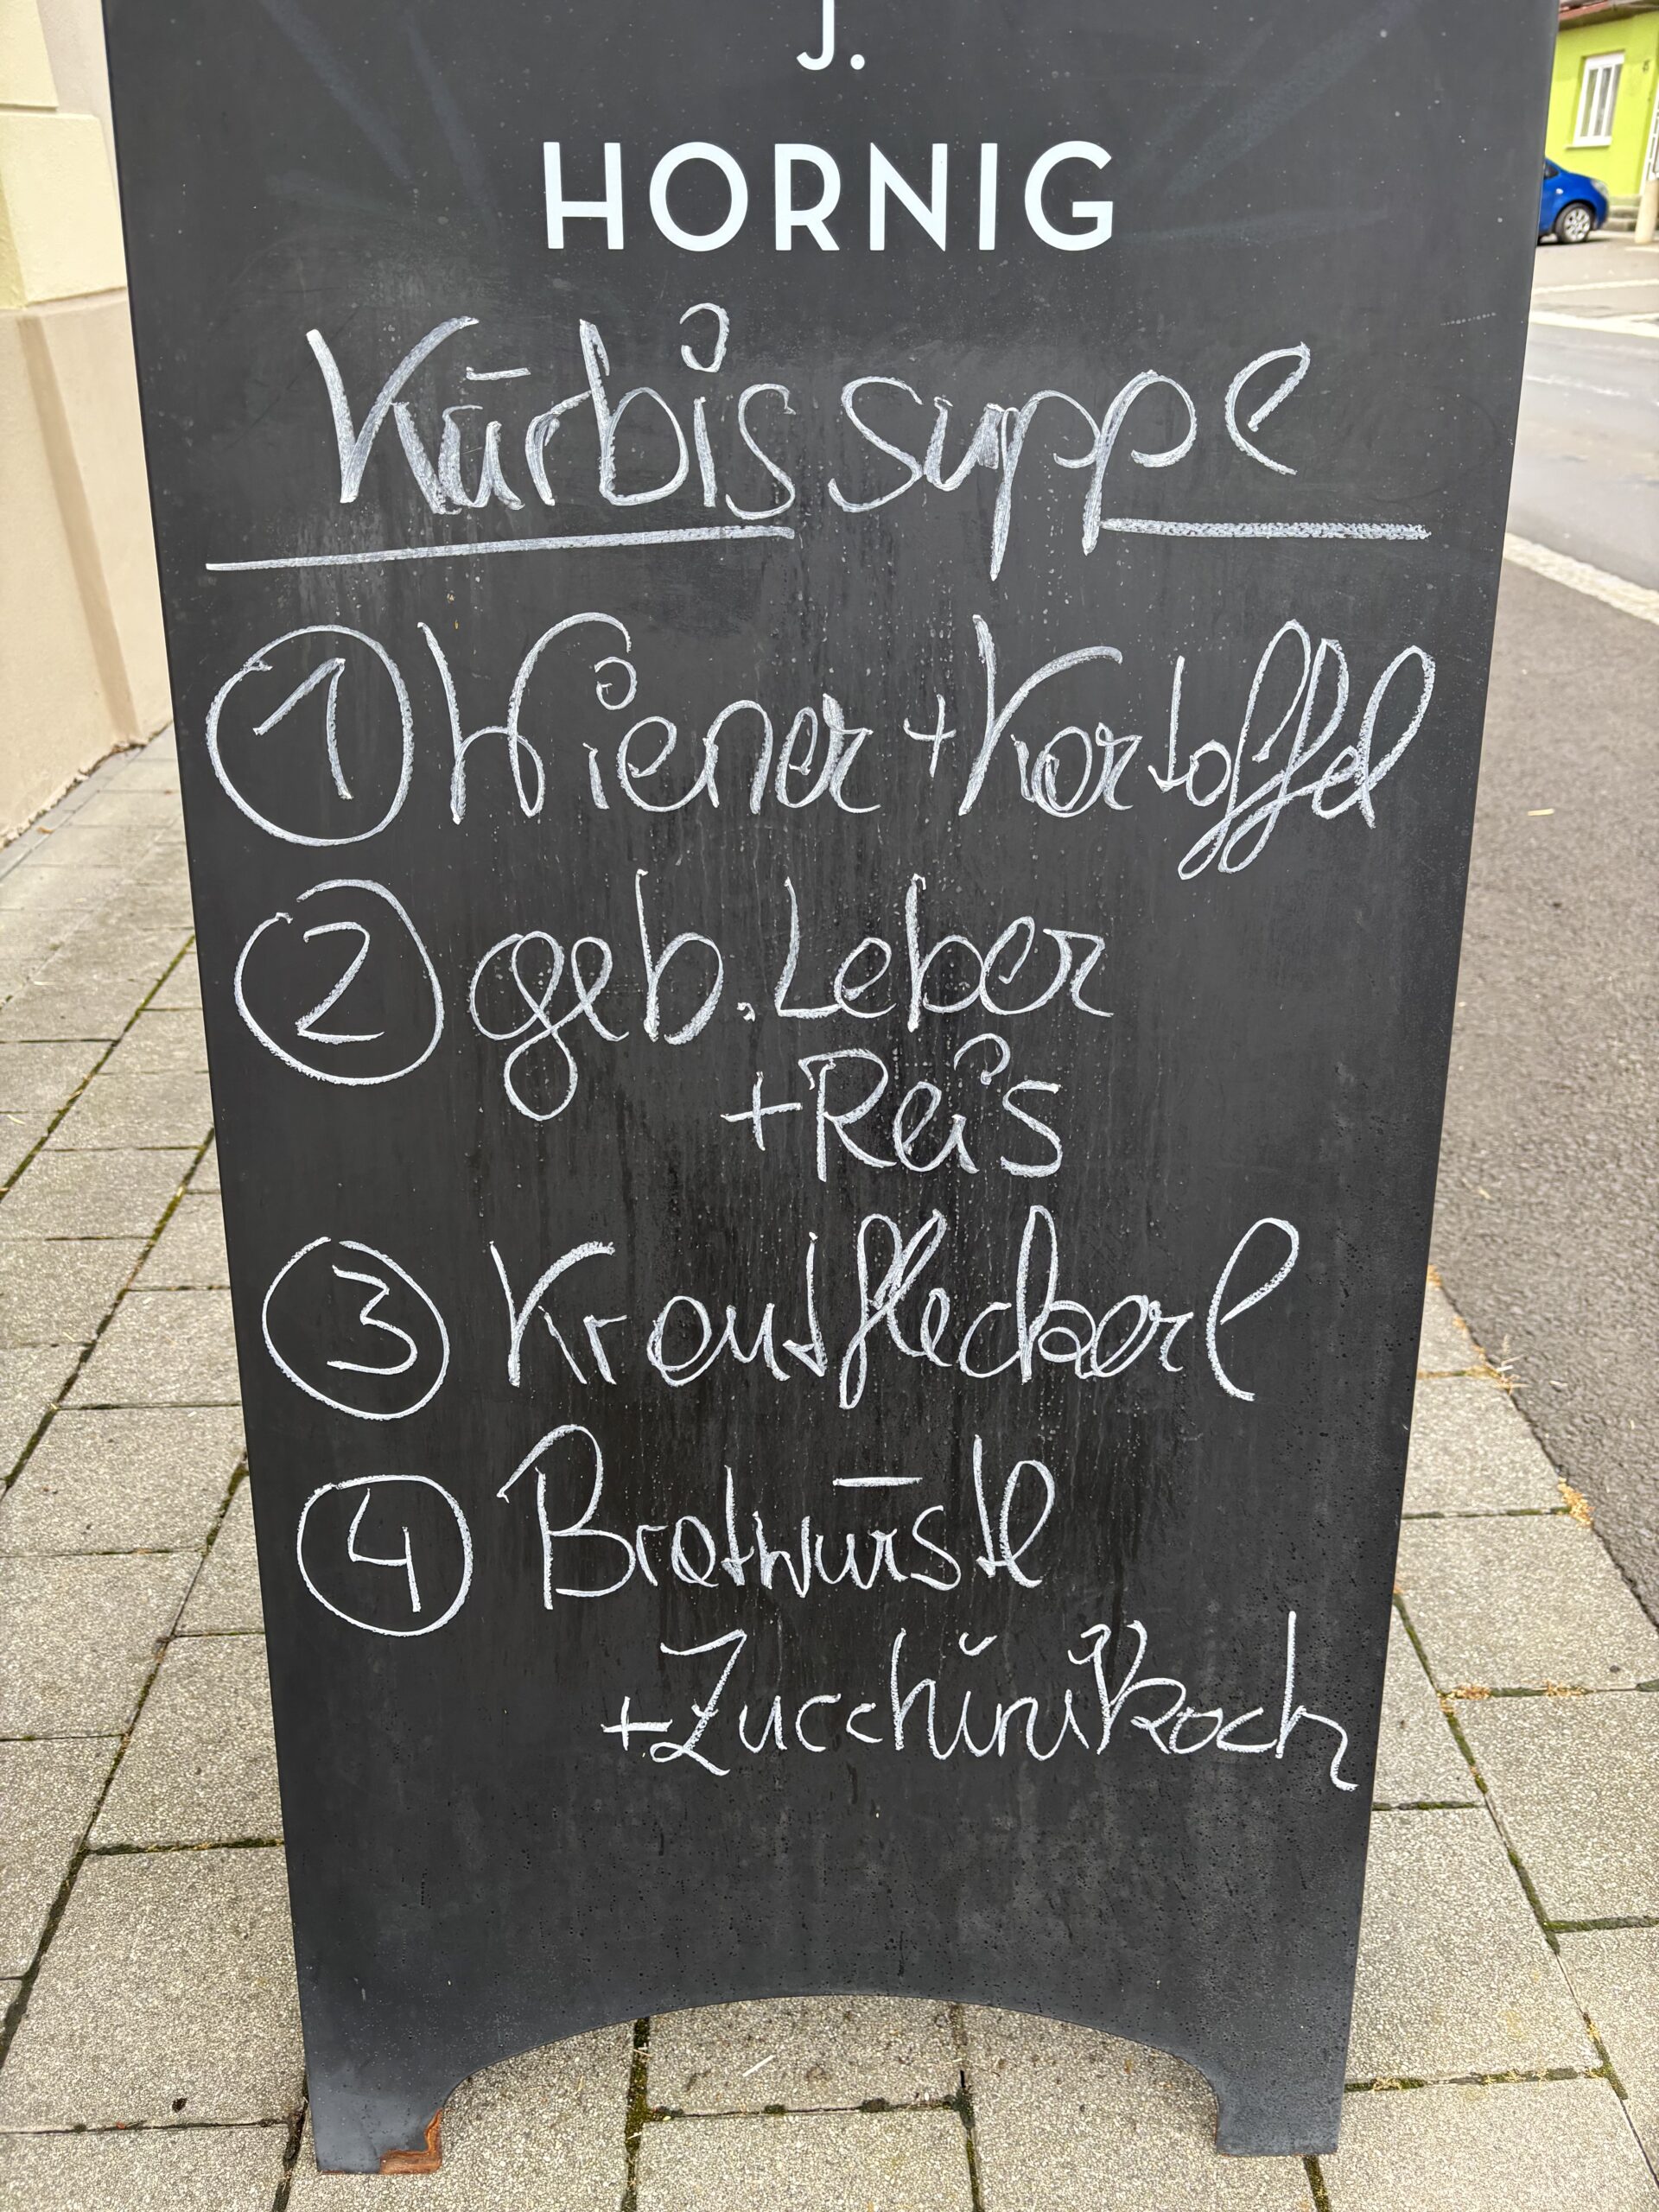 J.
HORNIG
Kürbissuppe
1 Wiener + Kartoffel
2 geb. Leber
+ Reis
3 Krautfleckerl
4 Bratwürstl
+ Zucchinikoch